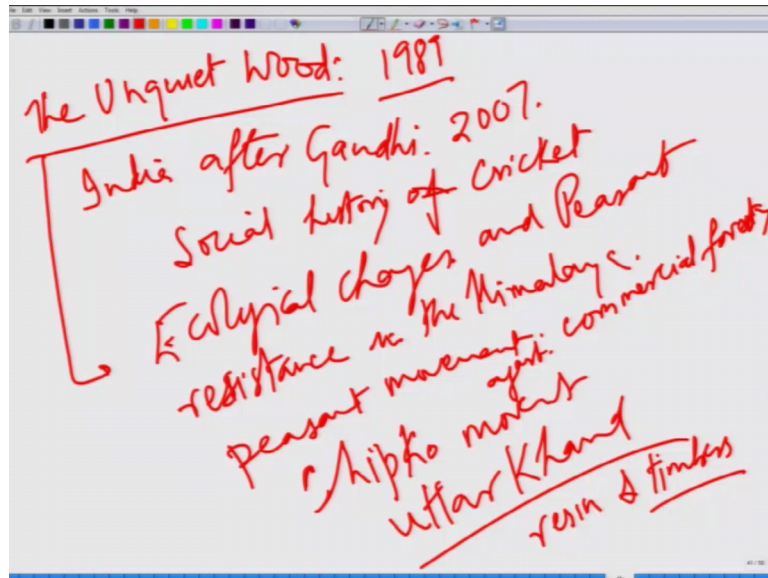 Edit View Insert Actions Tools Help
The Unquiet Wood: 1989
India after Gandhi. 2007.
Social history of Cricket
Ecological changes and Peasant
resistance in the Himalaya.
peasant movement. commercial forestry
against
Chipko movement
Uttar Khand
resin & timbers